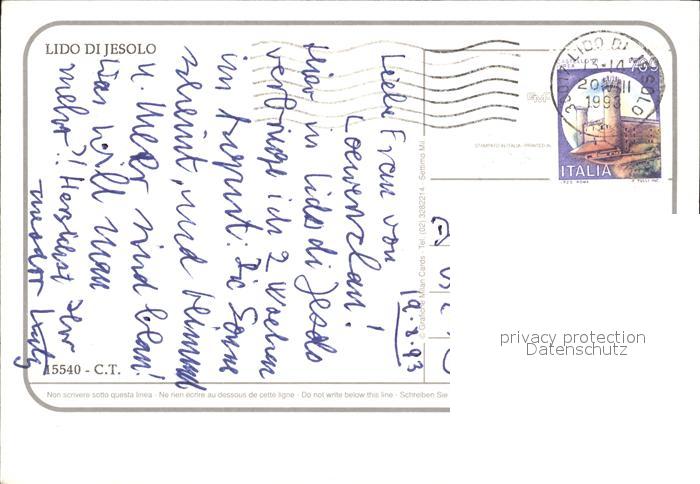 LIDO DI JESOLO
19.8.93
Liebe Frau von
Loewenclau!
Hier in Lido di Jesolo
verbringe ich 2 Wochen
im August. Die Sonne
scheint, und Himmel
u. Meer sind blau!
Was will man
mehr?! Herzlichst Ihr
Theodor
15540 - C.T.
Non scrivere sotto questa linea · Ne rien écrire au dessous de cette ligne · Do not write below this line · Schreiben Sie
© Grafiche Milan Cards - Tel. (02) 3282214 - Settimo Mil
STAMPATO IN ITALIA - PRINTED IN
LIDO DI JESOLO
13-14
20 VIII
1993
750
ITALIA
I.P.Z.S. ROMA
privacy protection
Datenschutz